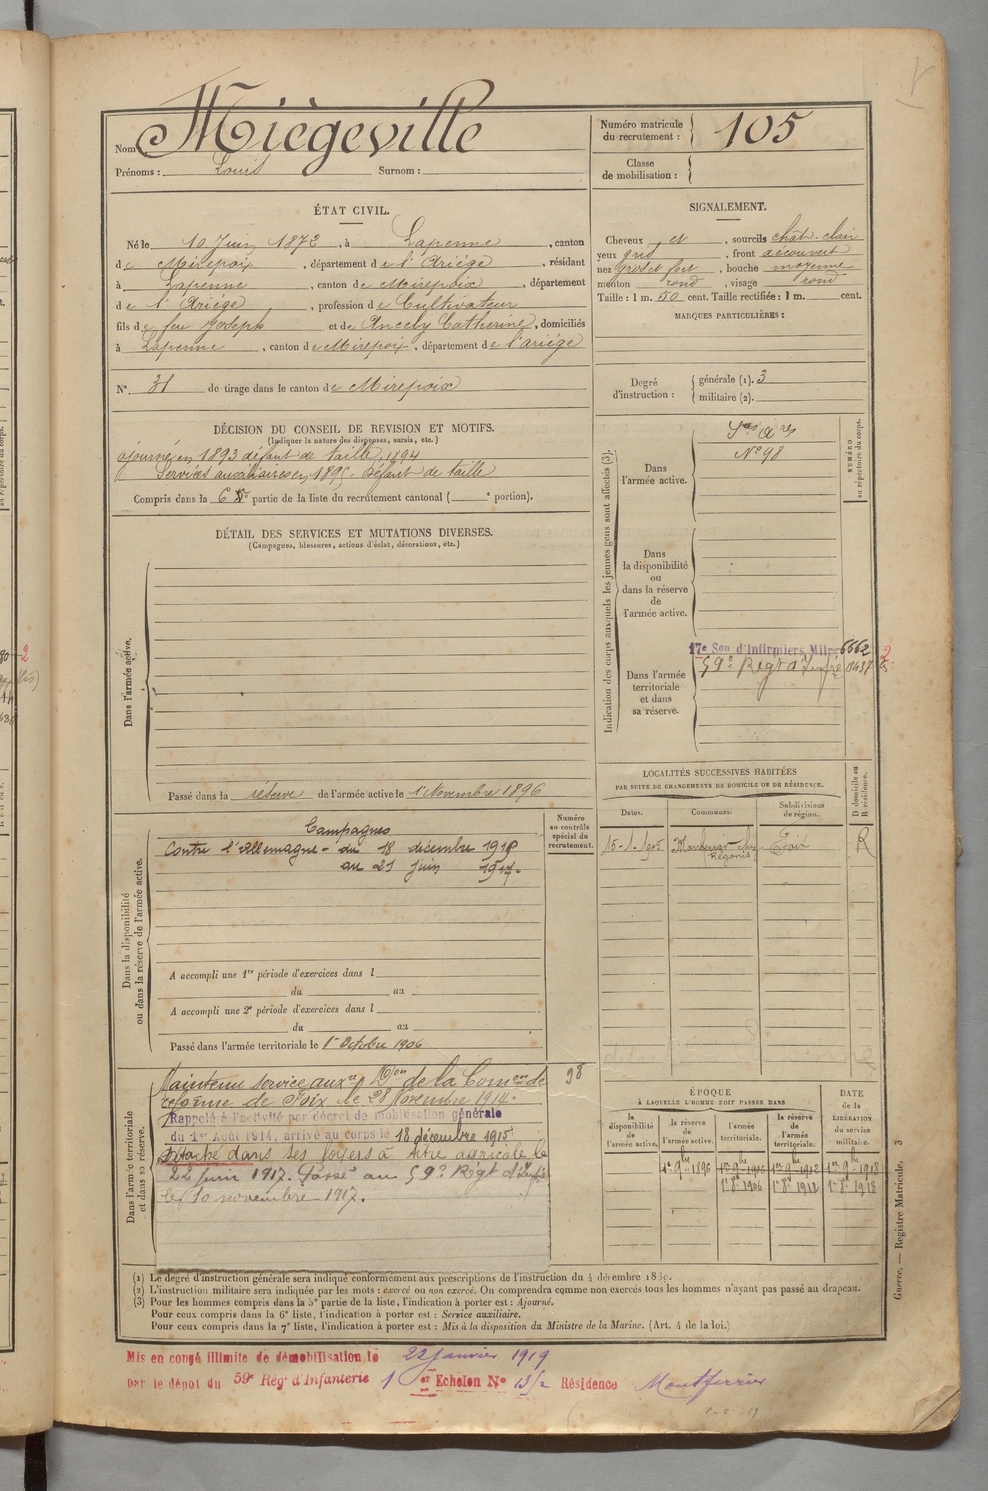 Nom Miègeville
Prénoms : Louis Surnom :
Numéro matricule du recrutement : 105
Classe de mobilisation :
ÉTAT CIVIL.
Né le 10 Juin 1872, à Lapenne, canton
de Mirepoix, département de l'Ariége, résidant
à Lapenne, canton de Mirepoix, département
de l'Ariége, profession de Cultivateur
fils de feu Joseph et de Ancely Catherine, domiciliés
à Lapenne, canton de Mirepoix, département de l'ariége
N° 31 de tirage dans le canton de Mirepoix
SIGNALEMENT.
Cheveux et, sourcils chât. clair
yeux gris, front découvert
nez gros et fort, bouche moyenne
menton rond, visage rond
Taille : 1 m. 50 cent. Taille rectifiée : 1 m. cent.
MARQUES PARTICULIÈRES :
Degré d'instruction : générale (1). 3
militaire (2).
DÉCISION DU CONSEIL DE REVISION ET MOTIFS.
(Indiquer la nature des dispenses, sursis, etc.)
ajourné en 1893 défaut de taille, 1894
Services auxiliaires en 1895 - Défaut de taille
Compris dans la 6e partie de la liste du recrutement cantonal ( e portion).
DÉTAIL DES SERVICES ET MUTATIONS DIVERSES.
(Campagnes, blessures, actions d'éclat, décorations, etc.)
Dans l'armée active.
Passé dans la réserve de l'armée active le 1 Novembre 1896
Indication des corps auxquels les jeunes gens sont affectés (3).
NUMÉRO au répertoire du corps.
Dans l'armée active.
Sces Ares
N° 98
Dans la disponibilité ou dans la réserve de l'armée active.
Dans l'armée territoriale et dans sa réserve.
17e Son d'Infirmiers Mitres 6662
59e Regt d'Infrie
LOCALITÉS SUCCESSIVES HABITÉES
PAR SUITE DE CHANGEMENTS DE DOMICILE OU DE RÉSIDENCE.
Dates. Communes. Subdivisions de région. D domicile ou R résidence.
15-1-1905 Montferrier chez Régonis Foix R
Numéro au contrôle spécial du recrutement.
Dans la disponibilité ou dans la réserve de l'armée active.
Campagnes
Contre l'Allemagne - du 18 décembre 1915
au 21 juin 1917.
A accompli une 1re période d'exercices dans l
du au
A accompli une 2e période d'exercices dans l
du au
Passé dans l'armée territoriale le 1er Octobre 1906
Dans l'armée territoriale et dans sa réserve.
Maintenu service auxre Don de la Comon de 98
réforme de Foix le 28 Novembre 1914.
Rappelé à l'activité par décret de mobilisation générale
du 1er Août 1914, arrivé au corps le 18 décembre 1915
Détaché dans ses foyers à titre agricole le
22 juin 1917. Passé au 59e Régt d'Infie
le 10 novembre 1917.
ÉPOQUE
À LAQUELLE L'HOMME DOIT PASSER DANS
la disponibilité de l'armée active. la réserve de l'armée active. l'armée territoriale. la réserve de l'armée territoriale. DATE de la LIBÉRATION du service militaire.
1er 9bre 1896 1er 9bre 1906 1er 9bre 1912 1er 9bre 1918
1er 8bre 1906 1er 8bre 1912 1er 8bre 1918
(1) Le degré d'instruction générale sera indiqué conformément aux prescriptions de l'instruction du 4 décembre 1889.
(2) L'instruction militaire sera indiquée par les mots : exercé ou non exercé. On comprendra comme non exercés tous les hommes n'ayant pas passé au drapeau.
(3) Pour les hommes compris dans la 5e partie de la liste, l'indication à porter est : Ajourné.
Pour ceux compris dans la 6e liste, l'indication à porter est : Service auxiliaire.
Pour ceux compris dans la 7e liste, l'indication à porter est : Mis à la disposition du Ministre de la Marine. (Art. 4 de la loi.)
Guerre. — Registre Matricule. 3
Mis en congé illimité de démobilisation le 22 janvier 1919
par le dépôt du 59e Rég. d'Infanterie 1er Echelon No 13/2 Résidence Montferrier